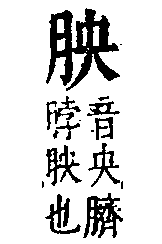 胦
音央臍
脖胦也